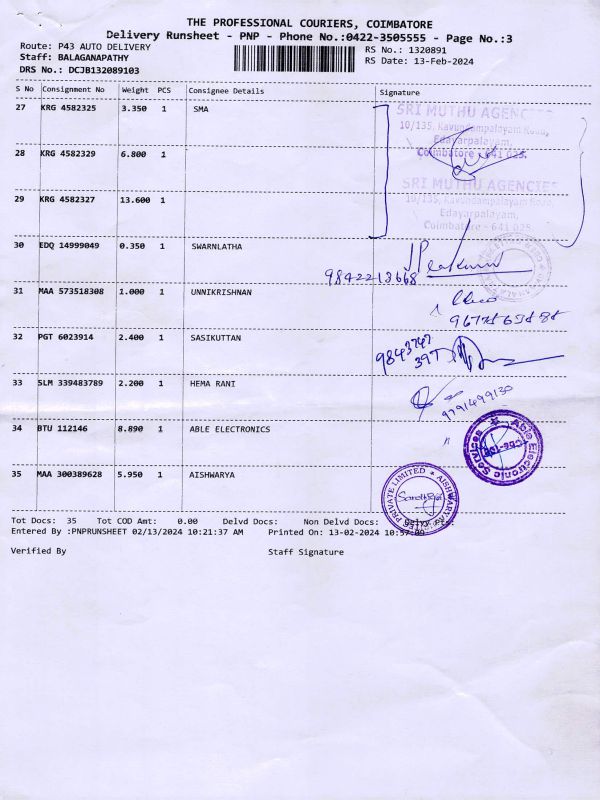 THE PROFESSIONAL COURIERS, COIMBATORE
Delivery Runsheet - PNP - Phone No.:0422-3505555 - Page No.:3
Route: P43 AUTO DELIVERY
RS No.: 1320891
Staff: BALAGANAPATHY
RS Date: 13-Feb-2024
DRS No.: DCJB132089103
S No Consignment No Weight PCS Consignee Details Signature
27 KRG 4582325 3.350 1 SMA
SRI MUTHU AGENCIES
10/135, Kavundampalayam Road,
Edayarpalayam,
Coimbatore - 641 025.
28 KRG 4582329 6.800 1
SRI MUTHU AGENCIES
29 KRG 4582327 13.600 1
10/135, Kavundampalayam Road,
Edayarpalayam,
Coimbatore - 641 025.
30 EDQ 14999049 0.350 1 SWARNLATHA
9842213668
31 MAA 573518308 1.000 1 UNNIKRISHNAN
32 PGT 6023914 2.400 1 SASIKUTTAN
9843747
397
33 SLM 339483789 2.200 1 HEMA RANI
9791499130
34 BTU 112146 8.890 1 ABLE ELECTRONICS
Able Electronic Services
35 MAA 300389628 5.950 1 AISHWARYA
AISHWARYA
PRIVATE LIMITED
Tot Docs: 35 Tot COD Amt: 0.00 Delvd Docs: Non Delvd Docs:
Entered By :PNPRUNSHEET 02/13/2024 10:21:37 AM Printed On: 13-02-2024 10:57:09
Verified By Staff Signature